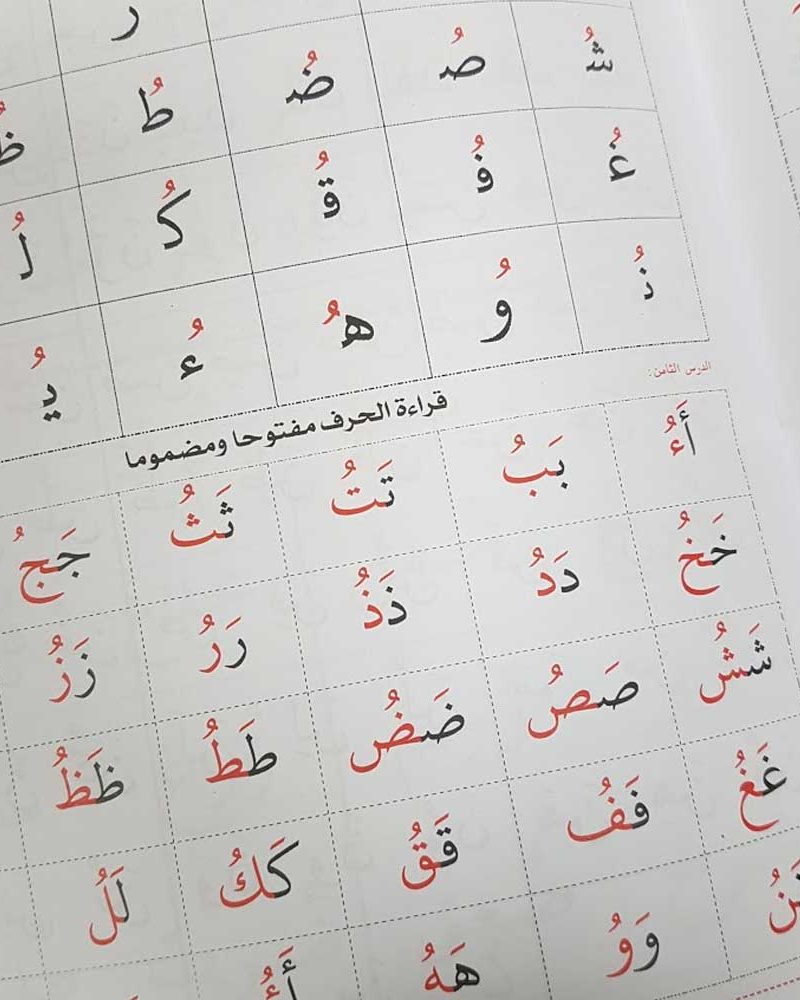 ر
شُ صُ ضُ طُ ظُ
غُ فُ قُ كُ لُ
نُ وُ هُ ءُ يُ
الدرس الثامن:
قراءة الحرف مفتوحا ومضموما
أَءُ بَبُ تَتُ ثَثُ جَجُ
خَخُ دَدُ ذَذُ رَرُ زَزُ
شَشُ صَصُ ضَضُ طَطُ ظَظُ
غَغُ فَفُ قَقُ كَكُ لَلُ
نَنُ وَوُ هَهُ أَءُ